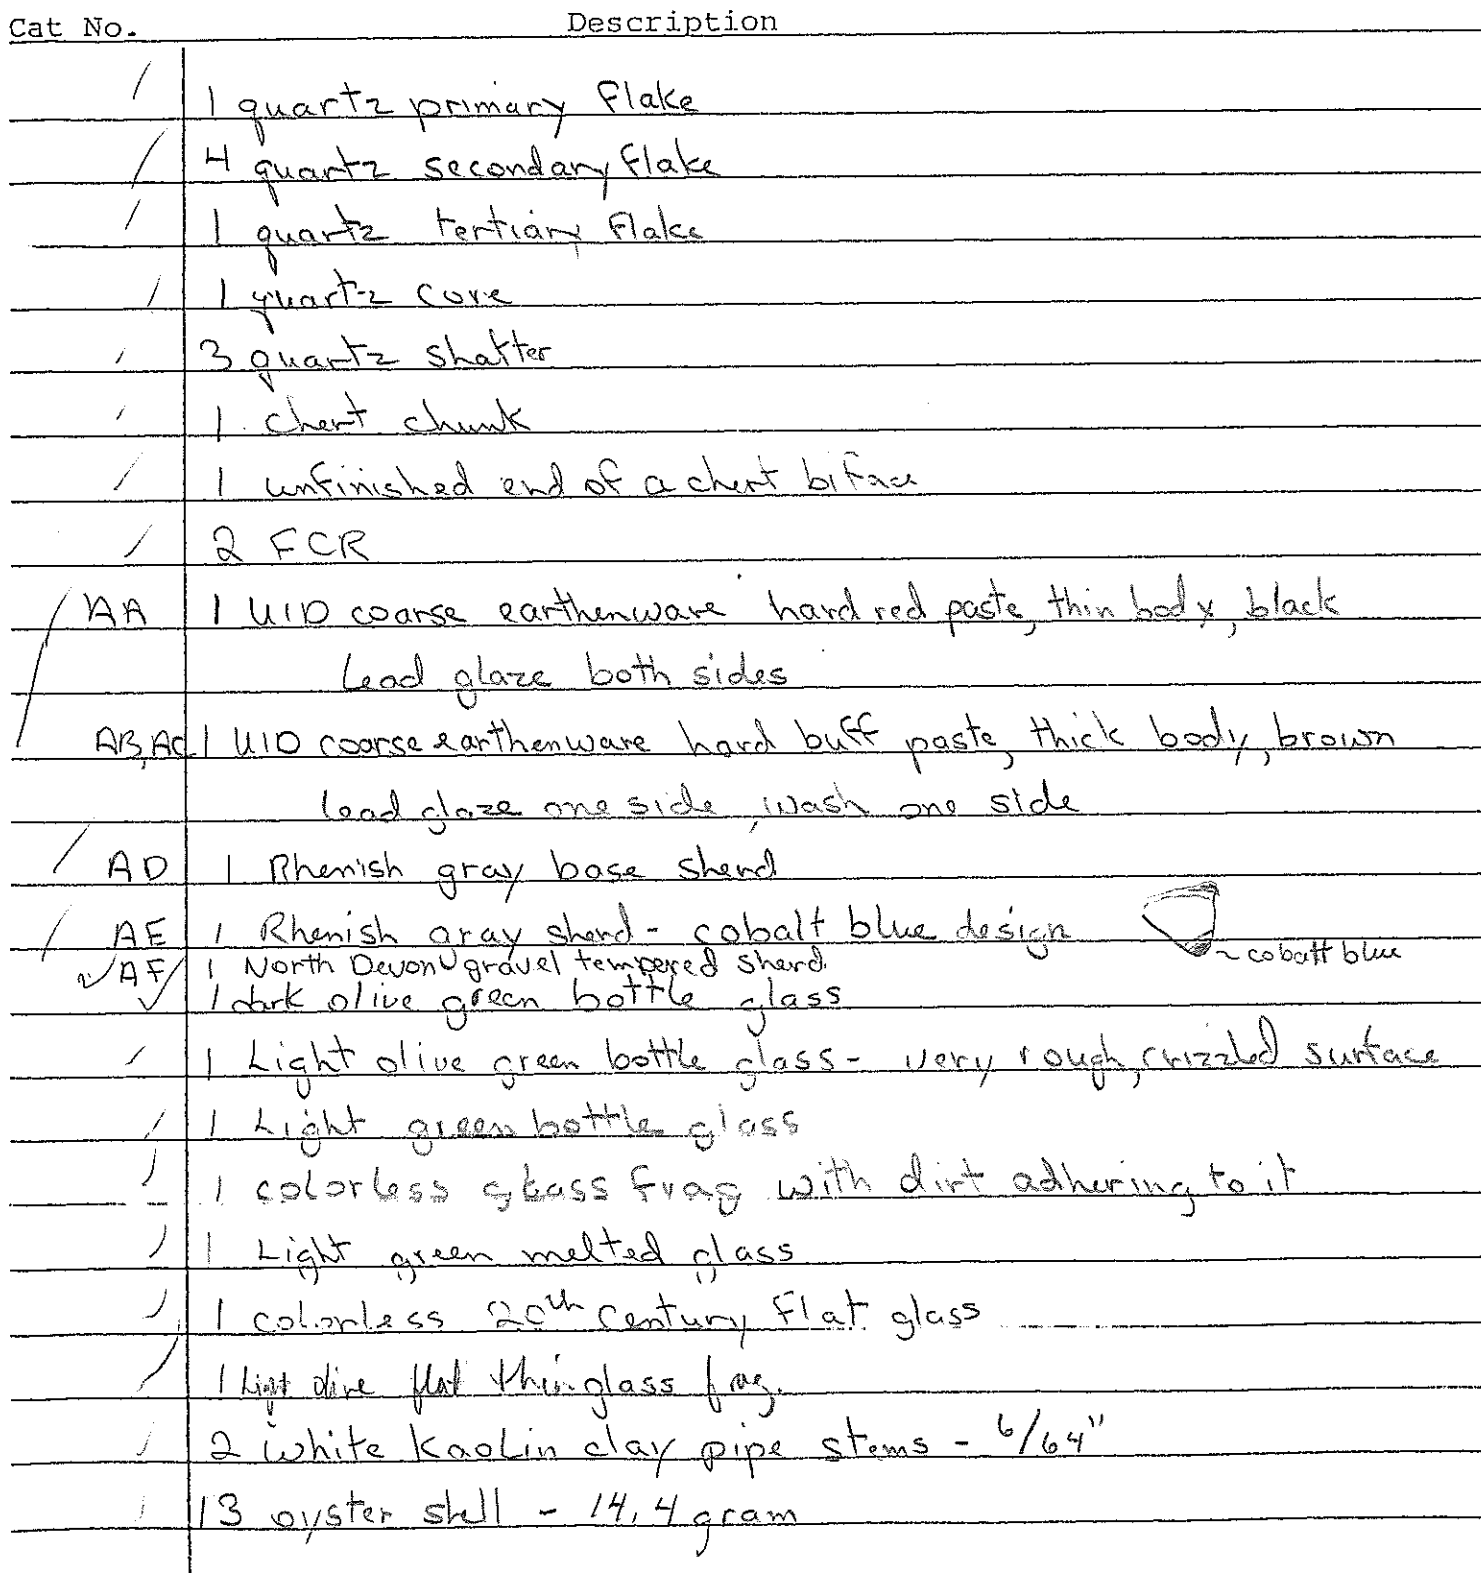 Cat No. Description
1 quartz primary flake
4 quartz secondary flake
1 quartz tertiary flake
1 quartz core
3 quartz shatter
1 chert chunk
1 unfinished end of a chert biface
2 FCR
AA 1 UID coarse earthenware hard red paste, thin body, black
lead glaze both sides
AB, AC 1 UID coarse earthenware hard buff paste, thick body, brown
lead glaze one side, wash one side
AD 1 Rhenish gray base sherd
AE 1 Rhenish gray sherd - cobalt blue design
~ cobalt blue
AF 1 North Devon gravel tempered sherd.
1 dark olive green bottle glass
1 Light olive green bottle glass - very rough, crizzled surface
1 Light green bottle glass
1 colorless glass frag with dirt adhering to it
1 Light green melted glass
1 colorless 20th Century flat glass
1 Light olive flat thin glass frag.
2 white Kaolin clay pipe stems - 6/64"
13 oyster shell - 14.4 gram